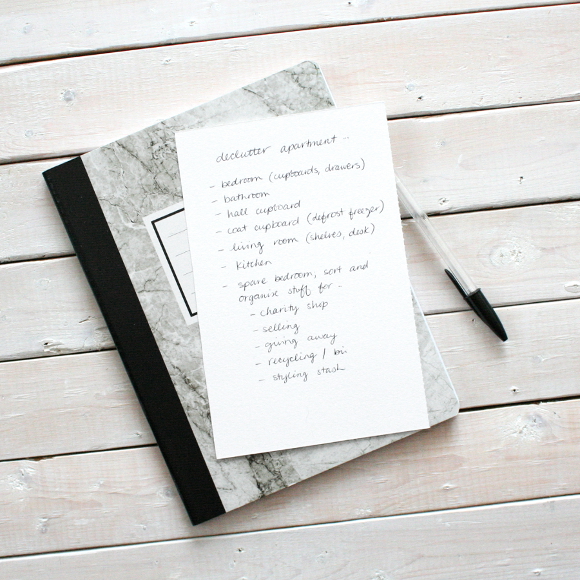 declutter apartment --
- bedroom (cupboards, drawers)
- bathroom
- hall cupboard
- coat cupboard (defrost freezer)
- living room (shelves, desk)
- kitchen
- spare bedroom, sort and
organise stuff for -
- charity shop
- selling
- giving away
- recycling / bin
- styling stash